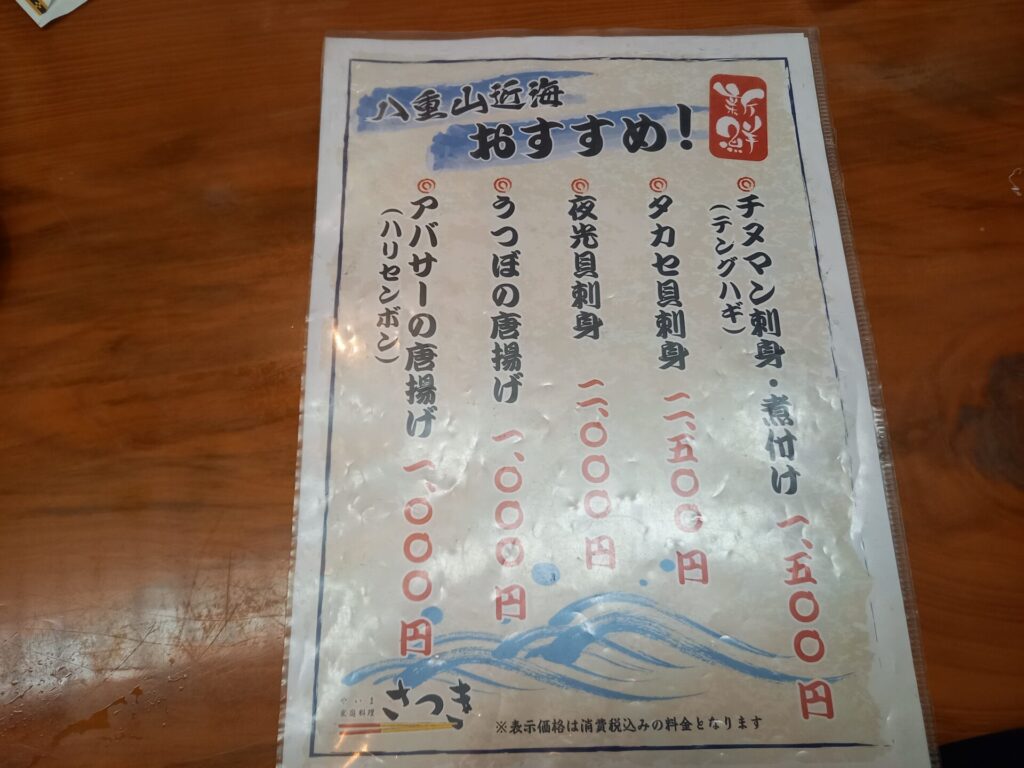 八重山近海
おすすめ!
新鮮
チヌマン刺身・煮付け 一、五〇〇円
(テングハギ)
タカセ貝刺身 二、五〇〇円
夜光貝刺身 二、〇〇〇円
うつぼの唐揚げ 一、〇〇〇円
アバサーの唐揚げ 一、〇〇〇円
(ハリセンボン)
やいま
家庭料理
さつき
※表示価格は消費税込みの料金となります